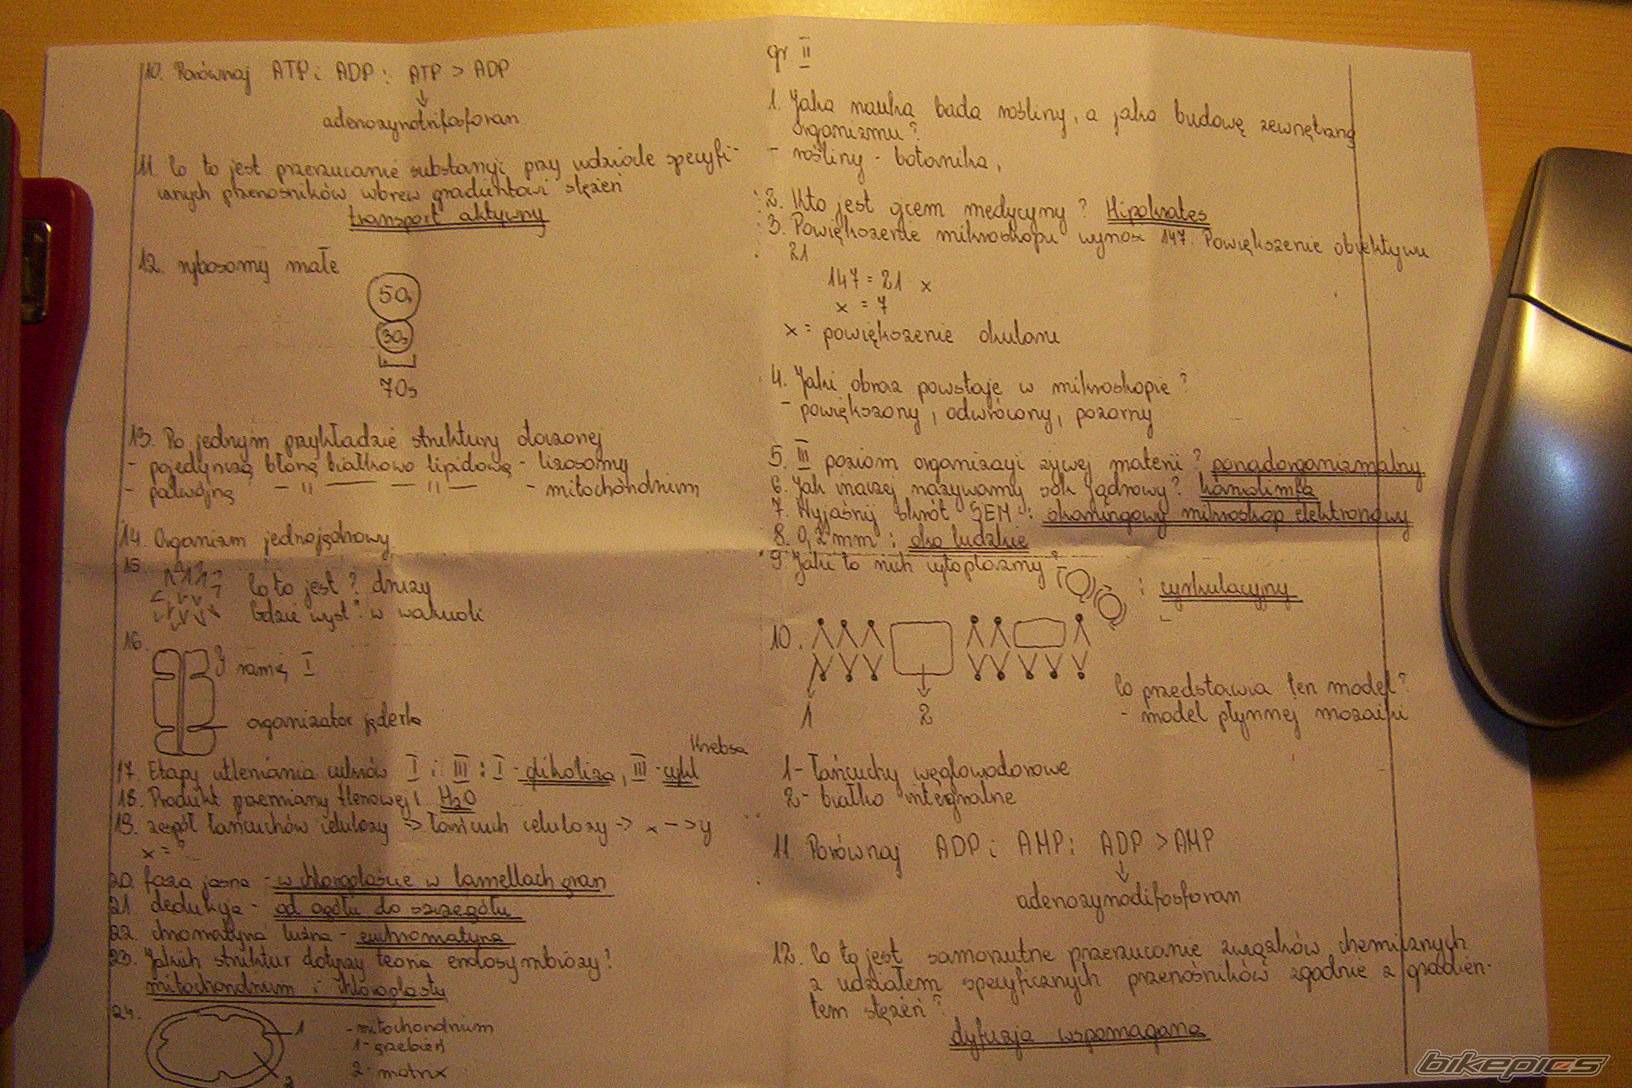 10. Porównaj ATP i ADP: ATP > ADP
↓
adenozynotrifosforan
11. Co to jest przerzucanie substancji przy udziale specyfi-
cznych przenośników wbrew gradientowi stężeń
transport aktywny
12. rybosomy małe
50s
30s
70s
13. Po jednym przykładzie struktury otoczonej
- pojedynczą błoną białkowo lipidową - lizosomy
- podwójną - " - - " - - mitochondrium
14. Organizm jednojądrowy
15. Co to jest? druzy
Gdzie wyst? w wakuoli
16.
} ramię I
organizator jąderka
Krebsa
17. Etapy utleniania cukrów I i III: I - glikoliza, III - cykl
18. Produkt przemiany tlenowej: H2O
19. zespół łańcuchów celulozy -> łańcuch celulozy -> x -> y
x = ?
20. faza jasna - w chloroplaście w lamellach gran
21. dedukcja - od ogółu do szczegółu
22. chromatyna luźna - euchromatyna
23. Jakich struktur dotyczy teoria endosymbiozy?
mitochondrium i chloroplasty
24.
1 - mitochondrium
1 - grzebień
2 2 - matrix
gr II
1. Jaka nauka bada rośliny, a jaka budowę zewnętrzną
organizmu?
- rośliny - botanika,
2. Kto jest ojcem medycyny? Hipokrates
3. Powiększenie mikroskopu wynosi 147. Powiększenie obiektywu
21
147 = 21 x
x = 7
x = powiększenie okularu
4. Jaki obraz powstaje w mikroskopie?
- powiększony, odwrócony, pozorny
5. III poziom organizacji żywej materii? ponadorganizmalny
6. Jak inaczej nazywamy sok jądrowy? kariolimfa
7. Wyjaśnij skrót SEM: skaningowy mikroskop elektronowy
8. 0,2 mm: oko ludzkie
9. Jaki to ruch cytoplazmy? : cyrkulacyjny
10.
1 2
Co przedstawia ten model?
- model płynnej mozaiki
1 - łańcuchy węglowodorowe
2 - białko integralne
11. Porównaj ADP i AMP: ADP > AMP
↓
adenozynodifosforan
12. Co to jest samorzutne przerzucanie związków chemicznych
z udziałem specyficznych przenośników zgodnie z gradien-
tem stężeń?
dyfuzja wspomagana
bikepics